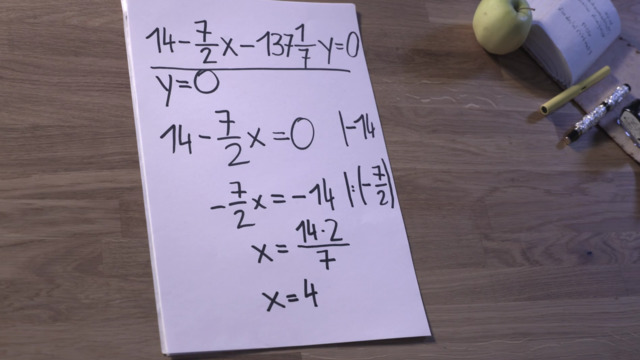 14 - 7/2 x - 137 1/7 y = 0
y = 0
14 - 7/2 x = 0 |-14
- 7/2 x = -14 |:(-7/2)
x = 14·2/7
x = 4